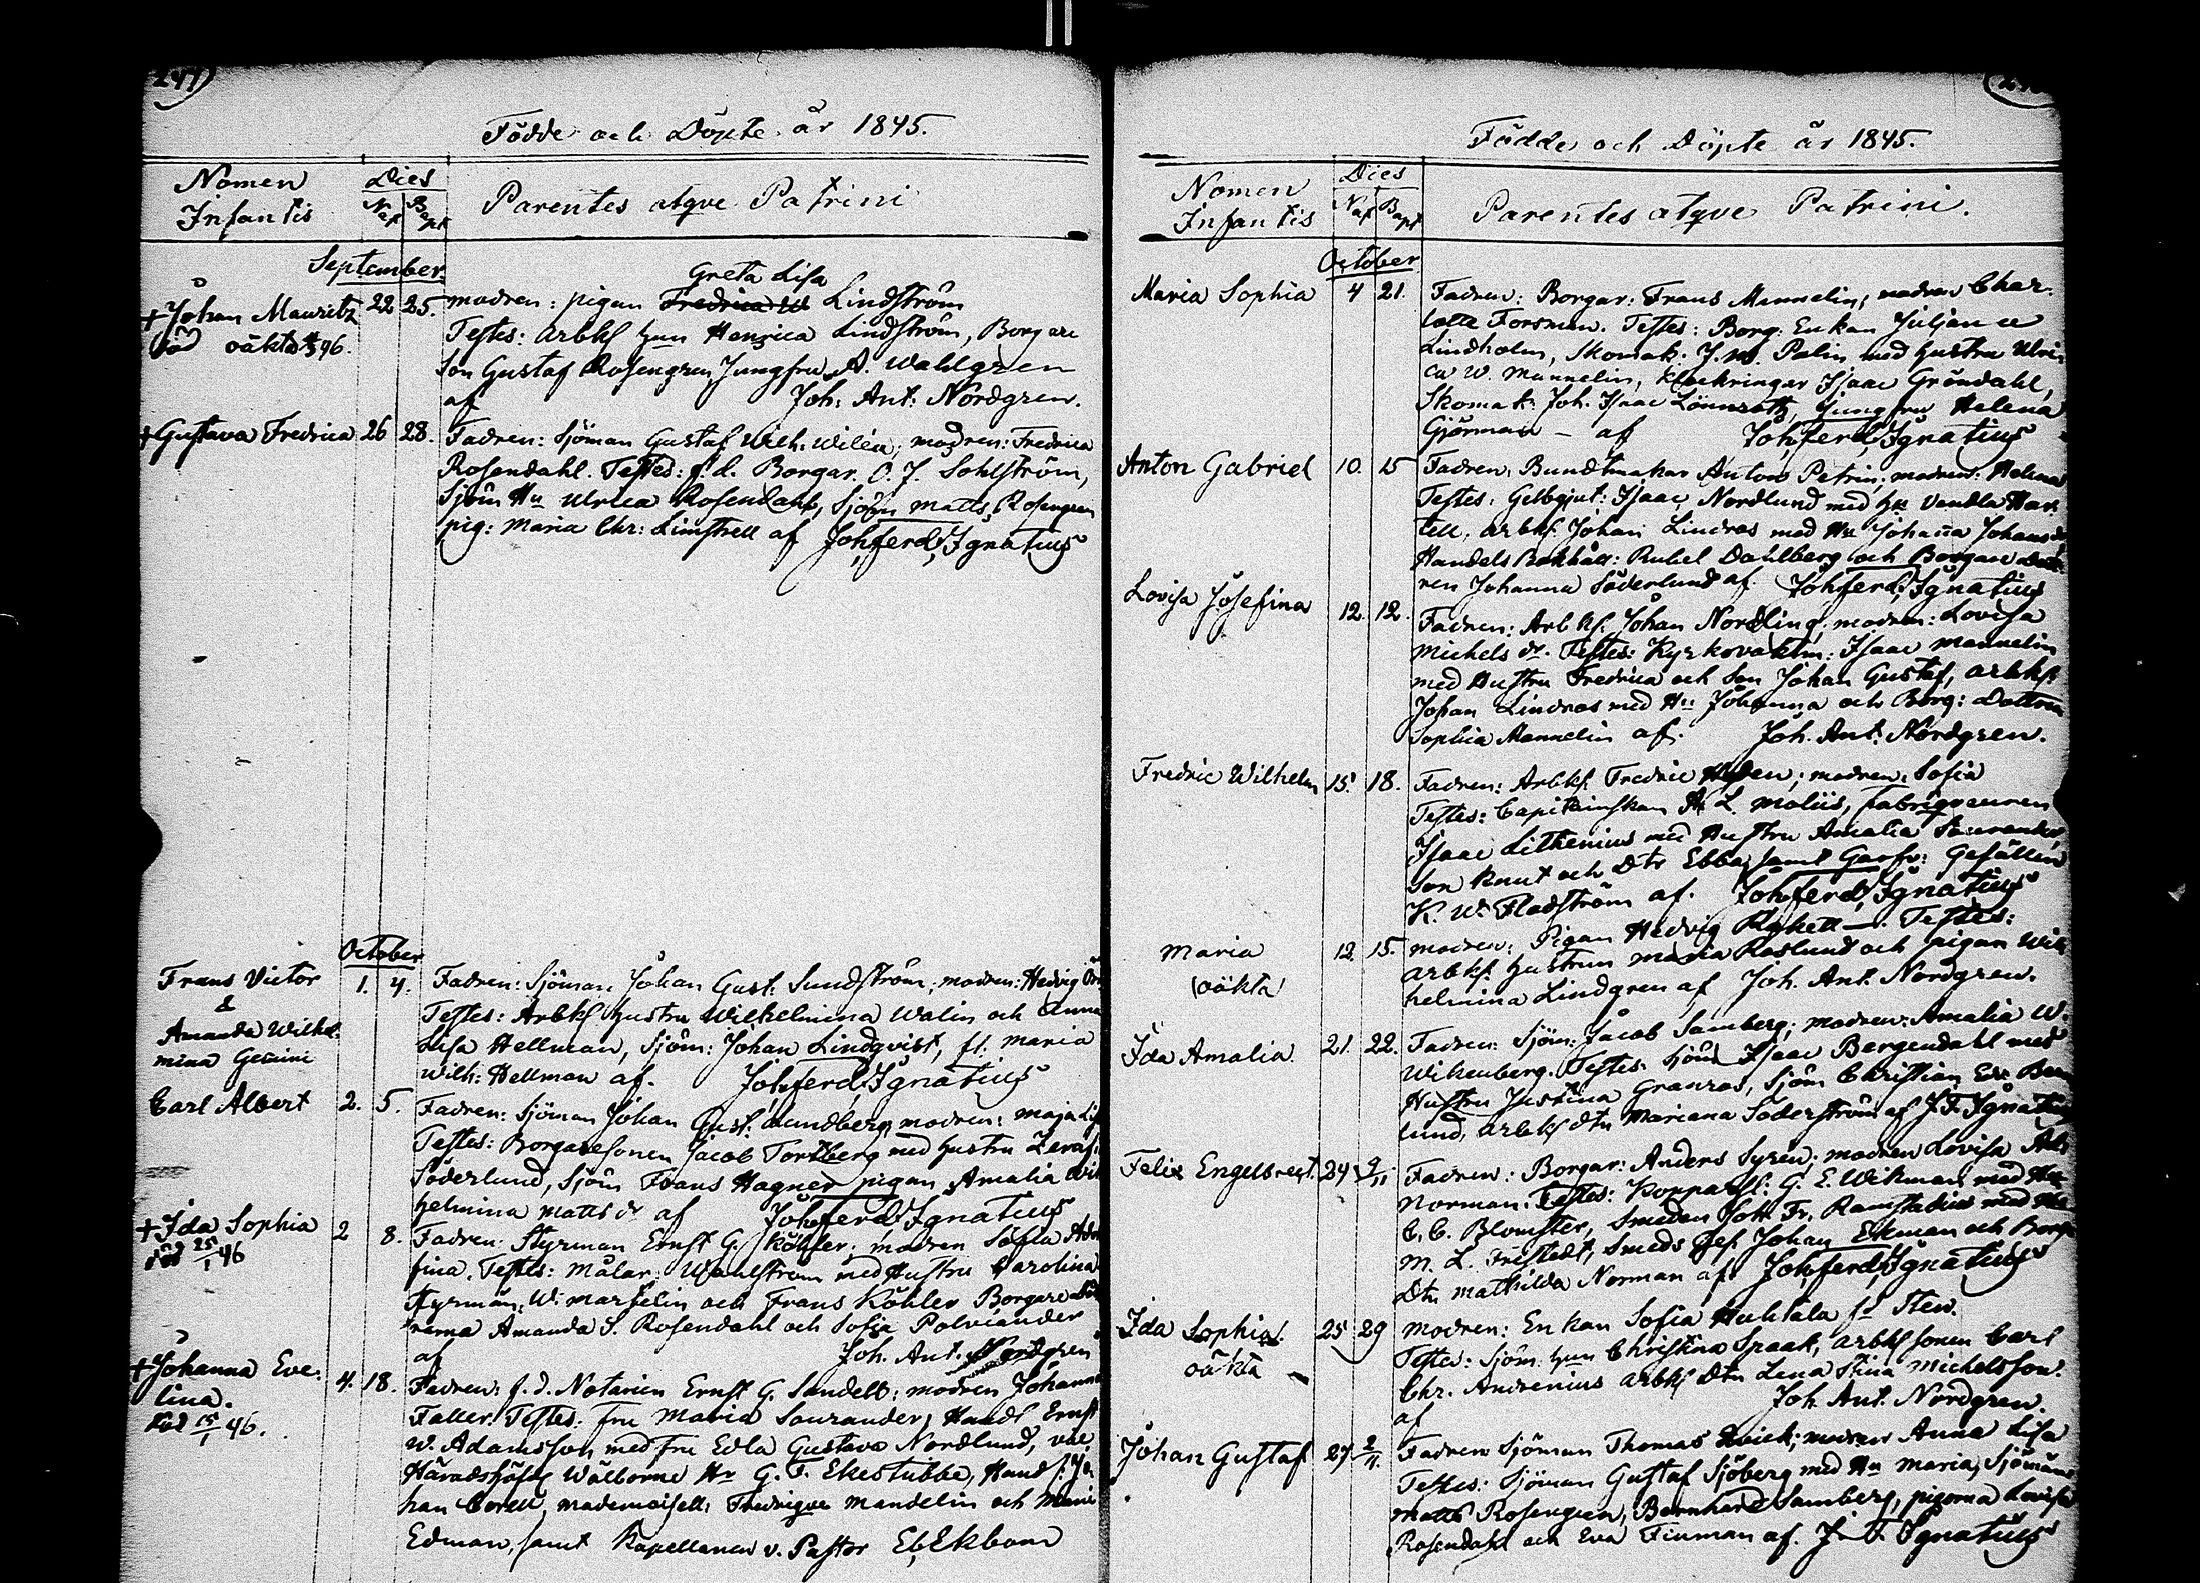 247
Födde och Döpte år 1845.
Nomen Infantis
Dies
Nat Bapt
Parentes atqve Patrini
September
Johan Mauritz 22 25. modren: pigan Greta Lisa Lindström
oäkta 46.
Testes: Arbkf hun Henrica Lindström, Borgare
son Gustaf Rosengren Jungfru A. Wahlgren
af Joh: Ant: Nordgren.
+ Gustava Fredrica 26 28. Fadren: Sjöman Gustaf Wilh. Wilén; modren: Fredrica
Rosendahl. Testes: f.d. Borgar. C. J. Sohlström,
Sjöm Hu Ulrica Rosendahl, Sjöm Matts Rosengren
pig: Maria Chr: Limstrell af Joh ferd, Ignatius
October
Frans Victor 1. 4. Fadren: Sjöman Johan Gust. Sundström; modren: Hedvig
&
Amanda Wilhel-
mina Gemini
Testes: Arbkf hustru Wilhelmina Walin och Anna
Lisa Hellman, Sjöm: Johan Lindqvist, fl. Maria
Wilh: Hellman af. Joh, ferd, Ignatius
Carl Albert 2. 5. Fadren: Sjöman Johan Gust. Lundberg, modren: Maja Lis
Testes: Borgaresonen Jacob Forsberg med hustru
Söderlund, Sjöm Frans Hagner pigan Amalia Wil
helmina Matts dr af Joh ferd Ignatius
+ Ida Sophia 2 8. Fadren: Styrman Ernst G. Köhler; modren Sofia
död 25/1 46
fina. Testes: Målar: Wahlström med Hustru Carolina
Styrmän: W. Marselin och Frans Köhler Borgare
rarna Amanda S. Rosendahl och Sofia Polviander
af Joh. Ant. Nordgren
+ Johanna Eve- 4. 18. Fadren: f.d. Notarien Ernst G. Sandell; modren Johanna
lina.
död 15/1 46.
Faller. Testes: fru Maria Saurander, Handl Ernst
W. Adamsson med fru Edla Gustava Nordlund, vic
Häradshöfd Wälborne Hr G. F. Ekestubbe, Handl: Jo
han Corell, mademoisell: Fredriqve Mandelin och Mari
Edman, samt Kapellanen v. Pastor Eb, Ekbom
Födde och Döpte år 1845.
Nomen Infantis
Dies
Nat Bapt
Parentes atqve Patrini.
October
Maria Sophia 4 21. Fadren: Borgar: Frans Mannelin; modren Char-
lotte Forsman. Testes: Borg: Enkan Juljana
Lindholm, Skomak. J. W. Palin med hustru Ulri-
ca W. Mannelin, Klockringar Isaac Gröndahl,
Skomak: Joh. Isaac Lönnroth, Jungfru Helena
Gjörman – af Joh, ferd, Ignatius
Anton Gabriel 10. 15 Fadren: Bundtmakar Anton Petrin; modren: Helena
Testes: Gelbgjut: Isaac Nordlund med Hu Vendla Har-
tell, arbkf: Johan Lindros med Hu Johanna Johans dr
Handels Bokhåll: Rubel Dahlberg och Borgare Dott-
ren Johanna Söderlund af. Joh ferd, Ignatius
Lovisa Josefina 12. 12. Fadren: Arbkf. Johan Nordling; modren: Lovisa
Michels dr. Testes: Kyrkovaktm: Isaac Mannelin
med Hustru Fredrica och Son Johan Gustaf, arbkf:
Johan Lindros med Hu Johanna och Borg: Dottren
Sophia Mannelin af. Joh. Ant: Nordgren.
Fredric Wilhelm 15. 18. Fadren: Arbkf. Fredric Hyden; modren: Sofia
Testes: Capitainskan A. L. Moliis, Fabriqveuren
Isaac Lithenius med Hustru Amalia Saurander,
Son Knut och Dtr Ebba, samt Garfv: Gesällen
K. W. Fladström af. Joh, ferd, Ignatius
Maria 12. 15. modren: Pigan Hedvig – Testes:
(oäkta)
Arbkf. hustrun Maria Roslund och pigan Wil-
helmina Lindgren af Joh. Ant. Nordgren.
Ida Amalia. 21. 22. Fadren: Sjöm: Jacob Samberg; modren: Amalia W.
Wikenberg. Testes: Sjöm Isaac Bergendahl med
Hustru Justina Granros, Sjöm Christian
lund, arbkf dtr Mariana Söderström af J. F. Ignatius
Felix Engelbrect. 24 9/11 Fadren: Borgar: Anders Syrén; modren Lovisa
Norman. Testes: Kopparsl: G. E. Wikman med Hu
C. C. Blomster, Smeden Joh. Fr. Ramstadius med Hu
M. L. Fristedt, Smeds Ges. Johan Ekman och Borg
Dtr Mathilda Norman af Joh, ferd, Ignatius
Ida Sophia. 25 29 Modren: Enkan Sofia Huhtala fd Sten.
oäkta –
Testes: Sjöm: hun Christina Spaak, arbkf sonen Carl
Chr. Andrenius arbkf Dtr Lena Stina Michelsson.
af Joh. Ant. Nordgren.
Johan Gustaf 27. 2/11. Fadren Sjöman Thomas Zwick; modren Anna Lisa
Testes: Sjöman Gustaf Sjöberg med Hu Maria, Sjömän:
Matts Rosengren, Bernhard Samberg, pigorna Lovisa
Rosendahl och Eva Finman af. J. F. Ignatius